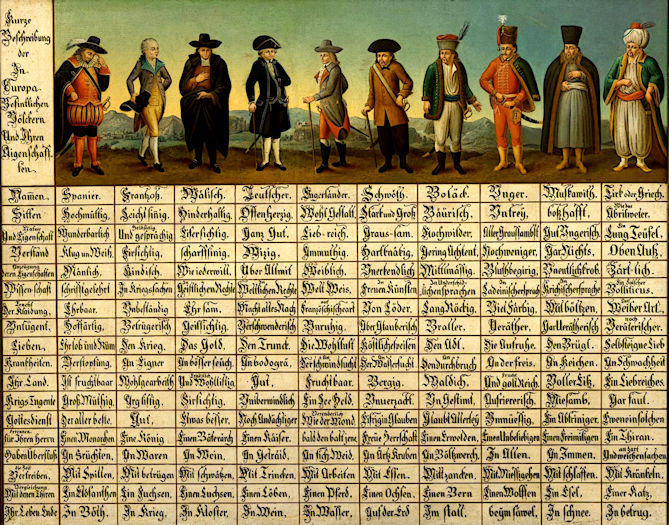 Kurze
Beschreibung
der
In
Europa
Befintlichen
Völckern
Und Ihren
Aigenschaff-
ten.
Namen. Spanier. Frantzoß. Wälisch. Teutscher. Engerländer. Schwöth. Boläck. Unger. Muskawith. Tirk oder Griech.
Sitten Hochmüttig. Leichtsinig. Hinderhaltig. Offenherzig. Wohl Gestalt. Stark und Groß Bäurisch. Untrey. boßhafft. Abrilweter.
Und Eigenschaft Wunderbarlich Und gesprächig Eifersichtig. Ganz Gut. Lieb-reich. Graus-sam. Nochwilder. Aller Graussambst. Gut Ungerisch. Lung Teufel.
Verstand Klug un Weiß. Firsichtig. scharffsinig. Wizig. Anmuthig. Hartknäbig. Gering Achtent. Nochweniger. Gar Nichts. Oben Auß.
deren Eigenschaften Mänlich. Kindisch. Wie ieder will. Über Allmit Weiblich. Unerkendlich Mittlmäsig. Bluthbegirig. Unentlichkrob. Zärt-lich.
Wissenschaft schriftgelehrt In Kriegssachen Geistlichen Rechte Weltlichen Rechte Welt Weis. Freuen Künsten sprachen Ladeinischersprach Krichischersprache Bolliticus.
Der Kleidung. Ehrbaar. Unbeständig Ehr sam. Macht alles Nach Französischeart Von Löder. Lang Röckig. Viel Färbig. Mit bölzen. Weiber Art.
Untugent. Hoffärtig. Betrügerisch Geillsichtig. Verschwenderisch Unruhig. Aber Glauberisch Braller. Veräther. Gar Verätherisch Veräterischer.
Lieben. Ehrlob und Rüm Den Krieg. Das Gold. Den Trunck. Die Wohllust Köstlichespeisen Den Adl. Die Aufruhe. Den Brügl. Selbsteigne Lieb
Krankheiten. Verstopfung. An Eigner An bösser seüch. An bodogrä. schwindsucht Wassersucht Den durchbruch An der freis. An Keichen. An Schwachheit
Ihr Land. Ist fruchtbaar Wohlgearbeith Und Wohllistig Gut. Fruchtbaar. Bergig. Waldich. Und gold Reich. Voller Eiß. Ein Liebreiches
Krigs Tugente Groß Müthig Arg listig. Firsichtig. Uniberwindlich Ein See Held. Unverzackt Un Gestimt. Aufrierisch. Miesamb. Gar faul.
Gottesdienst Der aller beste. Gut. Etwas besser. Noch Andächtiger Wie der Mond Glaubt Allerley Unmüessig. Ein Abtriniger. Eweneinsolchen
für Ihren Herrn Einen Monarchen Eine König Einen Bäterärch Einen Kaiser. bald den balt jene Freie Herrschaft Einen Erwelden. Einen Unbeliebigen Einen Freimäligen Ein Thiran.
Haben Überfluß An Früchten An Waren An Wein. An Getraid. An fich Weid. An Ärtz Kruben An Böltzwerch. In Allen. An Immen. Und weichensachen
Zeit Vertreiben. Mit Spillen. Mit betrügen Mit schwätzen. Mit Trincken. Mit Arbeiten Mit Essen. Mit zancken. Mit Miessigehen Mit schlaffen. Mit Kränkeln.
Mit denen Thiren Ein Elofanthen Ein Fuchsen. Einen Luchsen. Einen Löben. Einen Pferd. Einen Ochsen. Einen Bern Einen Wolffen Ein Esel. Einer Katz.
Ihr Leben Ende In Böth. In Krieg. In Kloster. In Wein. In Wasser. Auf der Erd Im stall. beym sawel. In schnee. In betrug.